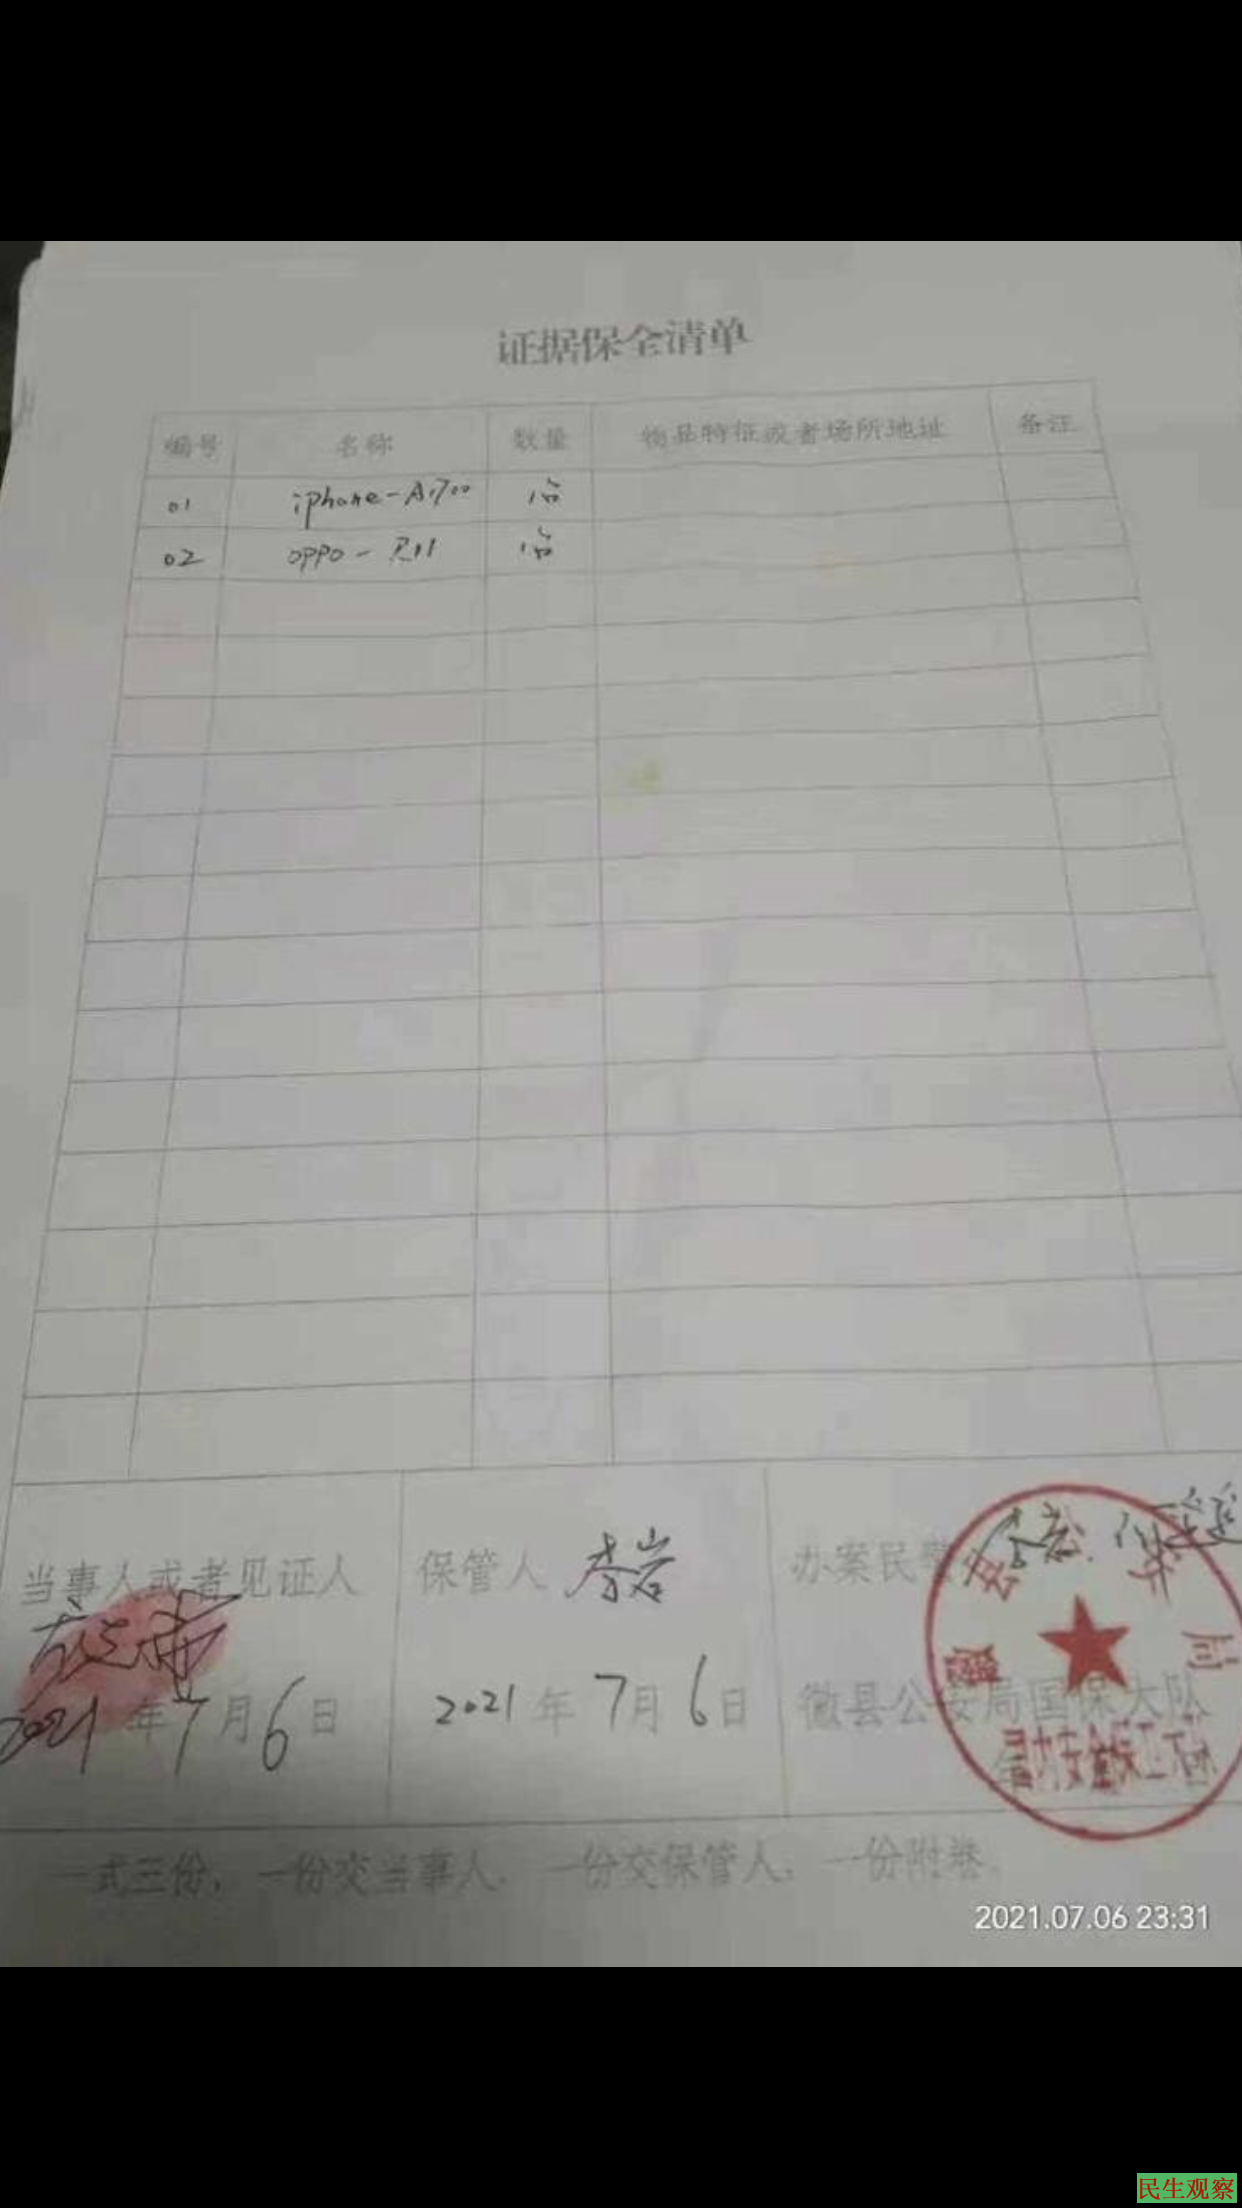 证据保全清单
编号 名称 数量 物品特征或者场所地址 备注
01 iphone-A1700 1台
02 OPPO-R11 1台
当事人或者见证人 保管人 李岩 办案民警 李岩
2021年7月6日 2021年7月6日 徽县公安局国保大队
徽县公安局
国内安全保卫大队
一式三份，一份交当事人，一份交保管人，一份附卷。
2021.07.06 23:31
民生观察